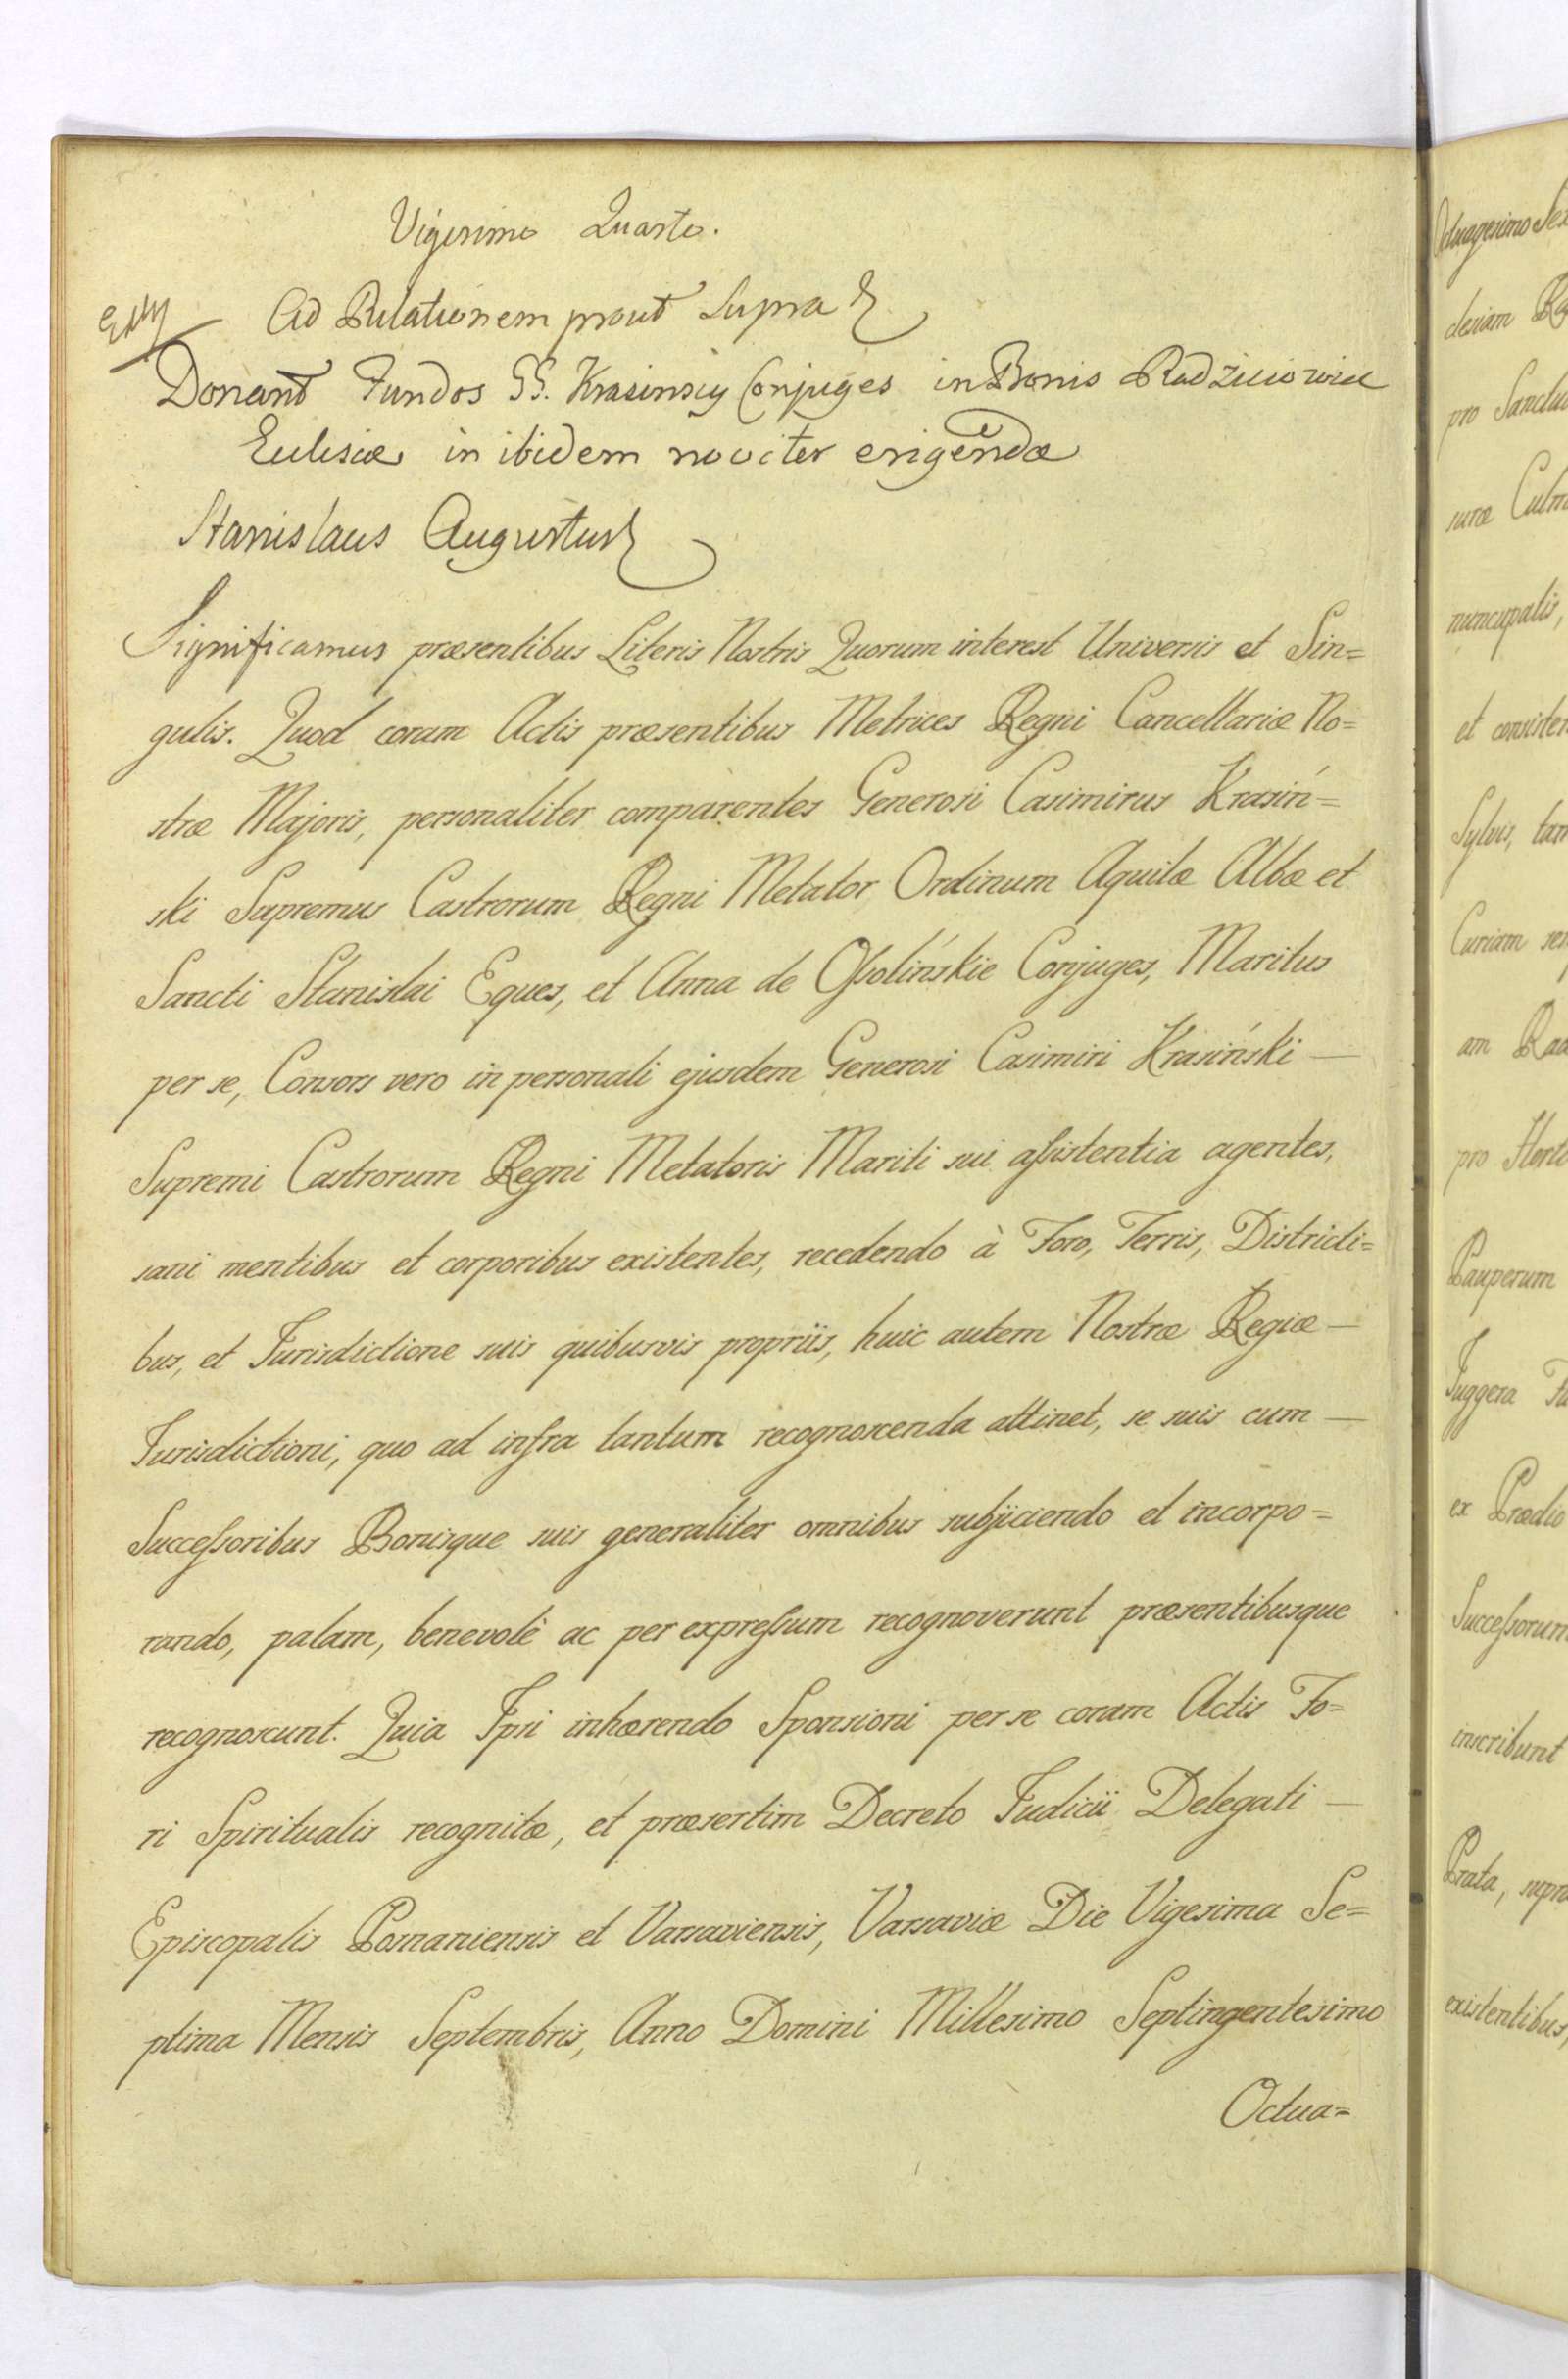 Vigesimo Quarto.
Ad Relationem prout Supra
Donant Fundos GG. Krasinscy Conjuges in Bonis Radziiowice
Eclesiæ in ibidem noviter erigendæ
Stanislaus Augustus
Significamus præsentibus Literis Nostris Quorum interest Universis et Sin=
gulis. Quod coram Actis præsentibus Metrices Regni Cancellariæ No=
stræ Majoris, personaliter comparentes Generosi Casimirus Krasiń=
ski Supremus Castrorum Regni Metator Ordinum Aquilæ Albæ et
Sancti Stanislai Eques, et Anna de Oſsolińskie Conjuges, Maritus
per se, Consors vero in personali ejusdem Generosi Casimiri Krasiński —
Supremi Castrorum Regni Metatoris Mariti sui aſsistentia agentes,
sani mentibus et corporibus existentes, recedendo à Foro, Terris, Districti=
bus, et Jurisdictione suis quibusvis propriis, huic autem Nostræ Regiæ —
Jurisdictioni, quo ad infra tantum recognoscenda attinet, se suis cum —
Succeſsoribus Bonisque suis generaliter omnibus subjiciendo et incorpo=
rando, palam, benevolè ac per expreſsum recognoverunt præsentibusque
recognoscunt. Quia Ipsi inhærendo Sponsioni per se coram Actis Fo=
ri Spiritualis recognitæ, et præsertim Decreto Judicii Delegati —
Episcopalis Posnaniensis et Varsaviensis, Varsaviæ Die Vigesima Se=
ptima Mensis Septembris, Anno Domini Millesimo Septingentesimo
Octua=
Octuagesimo Sex
clesiam
pro Sanctu
suræ Culm
nuncupatis,
et consisten
Sylvis, tam
Curiam
am
pro Horto
Pauperum
Juggera
ex Prædio
Succeſsorum
inscribunt
Prata, supra
existentibus,